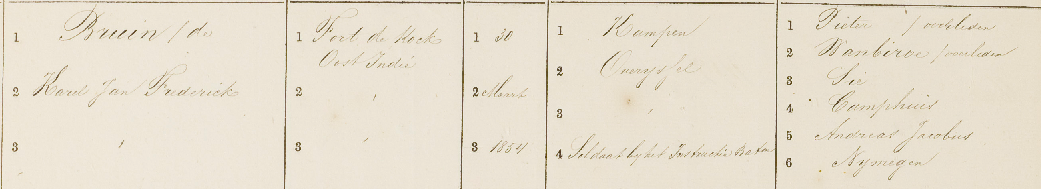 1 Bruin / de
2 Karel Jan Frederick
3 "
1 Fort de Kock
Oost Indië
2 "
3 "
1 30
2 Maart
3 1854
1 Kampen
2 Overyssel
3 "
4 Soldaat by het Instructie Batan
1 Pieter / overleden
2 Wanbiroe / overleden
3 Sie
4 Camphuis
5 Andreas Jacobus
6 Nymegen